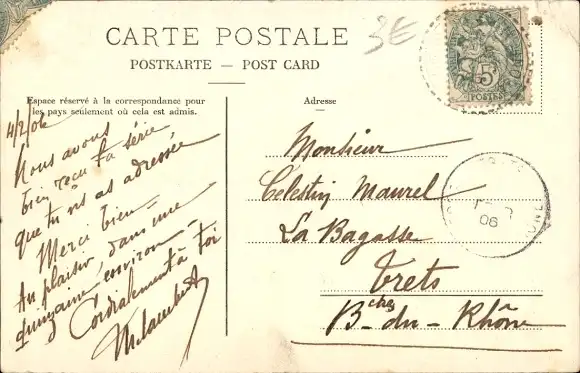 CARTE POSTALE
POSTKARTE — POST CARD
3€
5
POSTES
Espace réservé à la correspondance pour
les pays seulement où cela est admis.
Adresse
4/2/06
Nous avons
bien reçu ta série
que tu ns as adressée
Merci bien –
Au plaisir, dans une
quinzaine environ –
Cordialement à toi
Monsieur
Celestin Maurel
La Bagasse
Trets
Bches du – Rhône
06